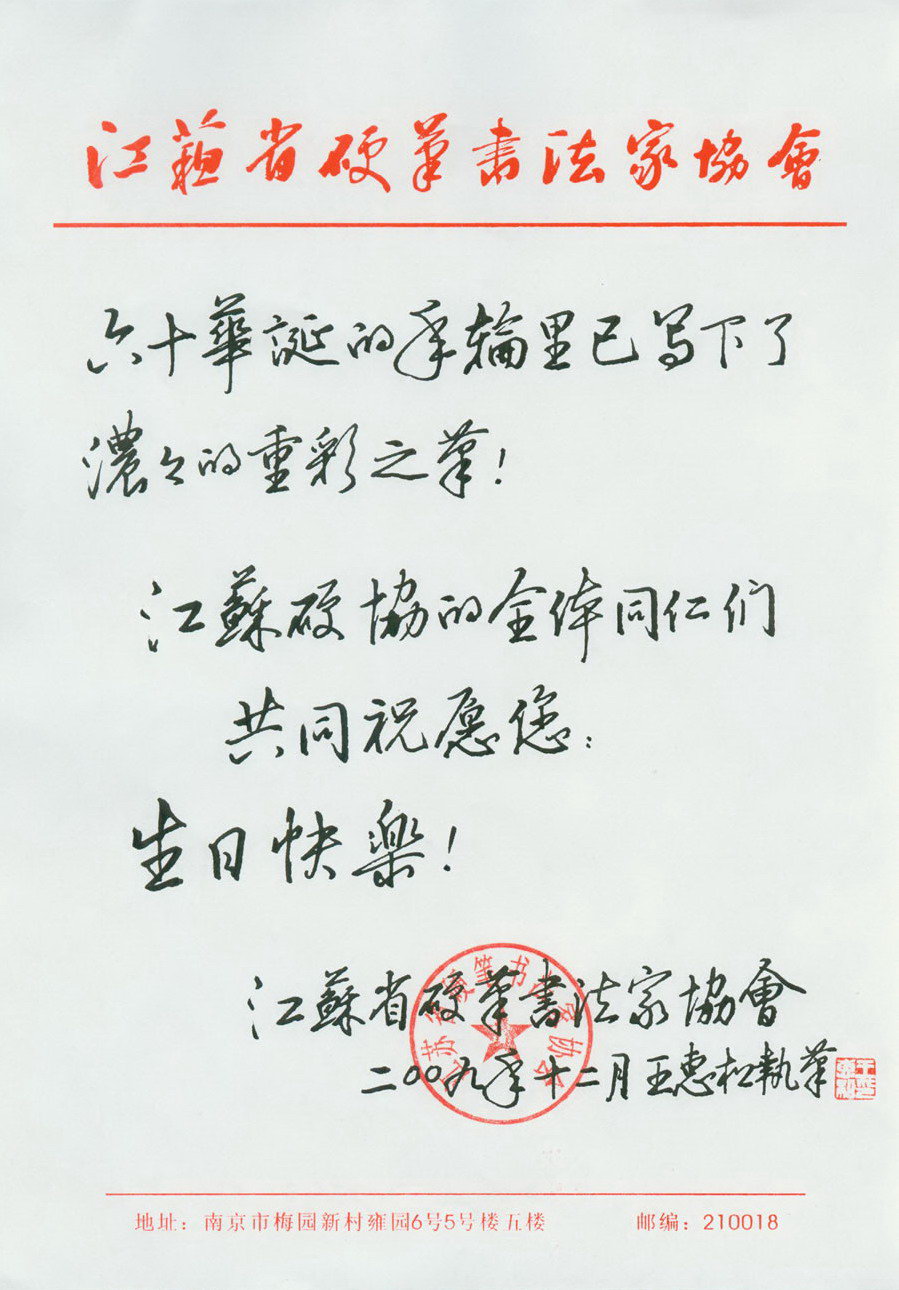 江蘇省硬筆書法家協會
六十華誕的年輪里已写下了
濃々的重彩之筆！
江蘇硬協的全体同仁们
共同祝愿您：
生日快樂！
江蘇省硬筆書法家協會
二〇〇九年十二月王惠松執筆
江苏省硬笔书法家协会
地址：南京市梅园新村雍园6号5号楼五楼 邮编：210018